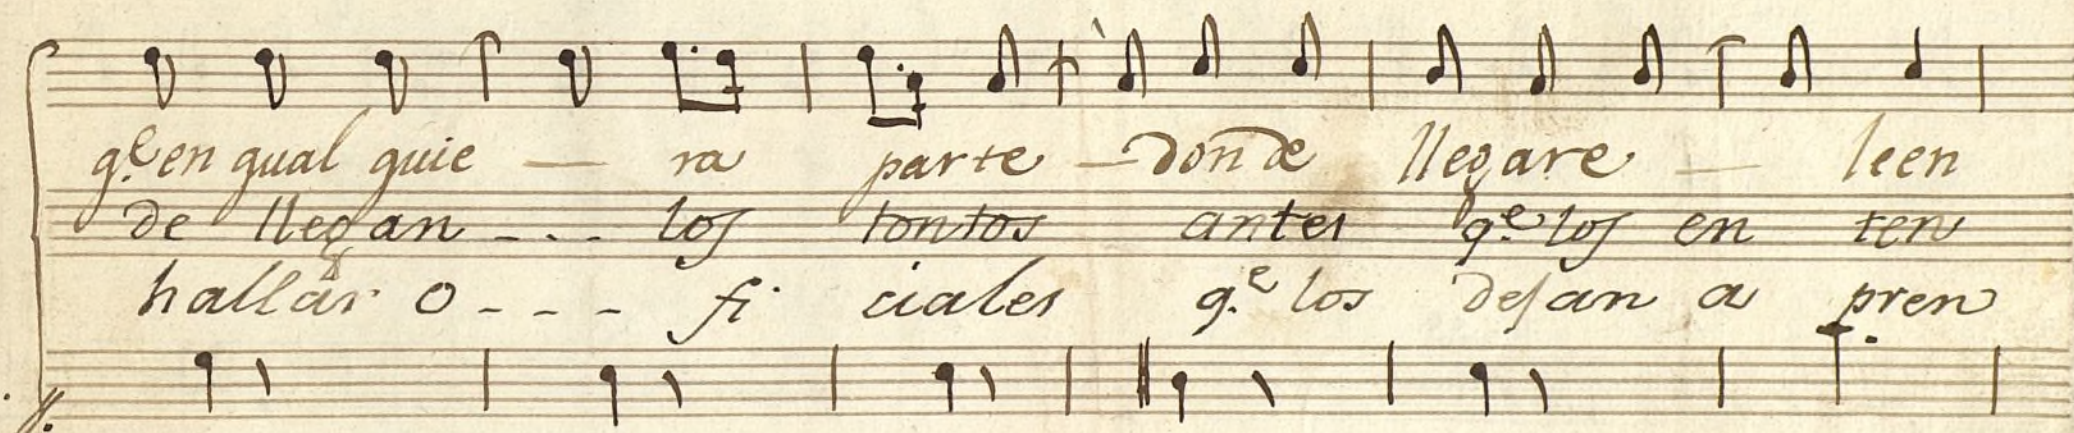 q.e en qual quie — ra parte — donde llegare — leen
de llegan - - - los tontos antes q.e los en ten
hallar o - - - fi ciales q.e los dejan a pren